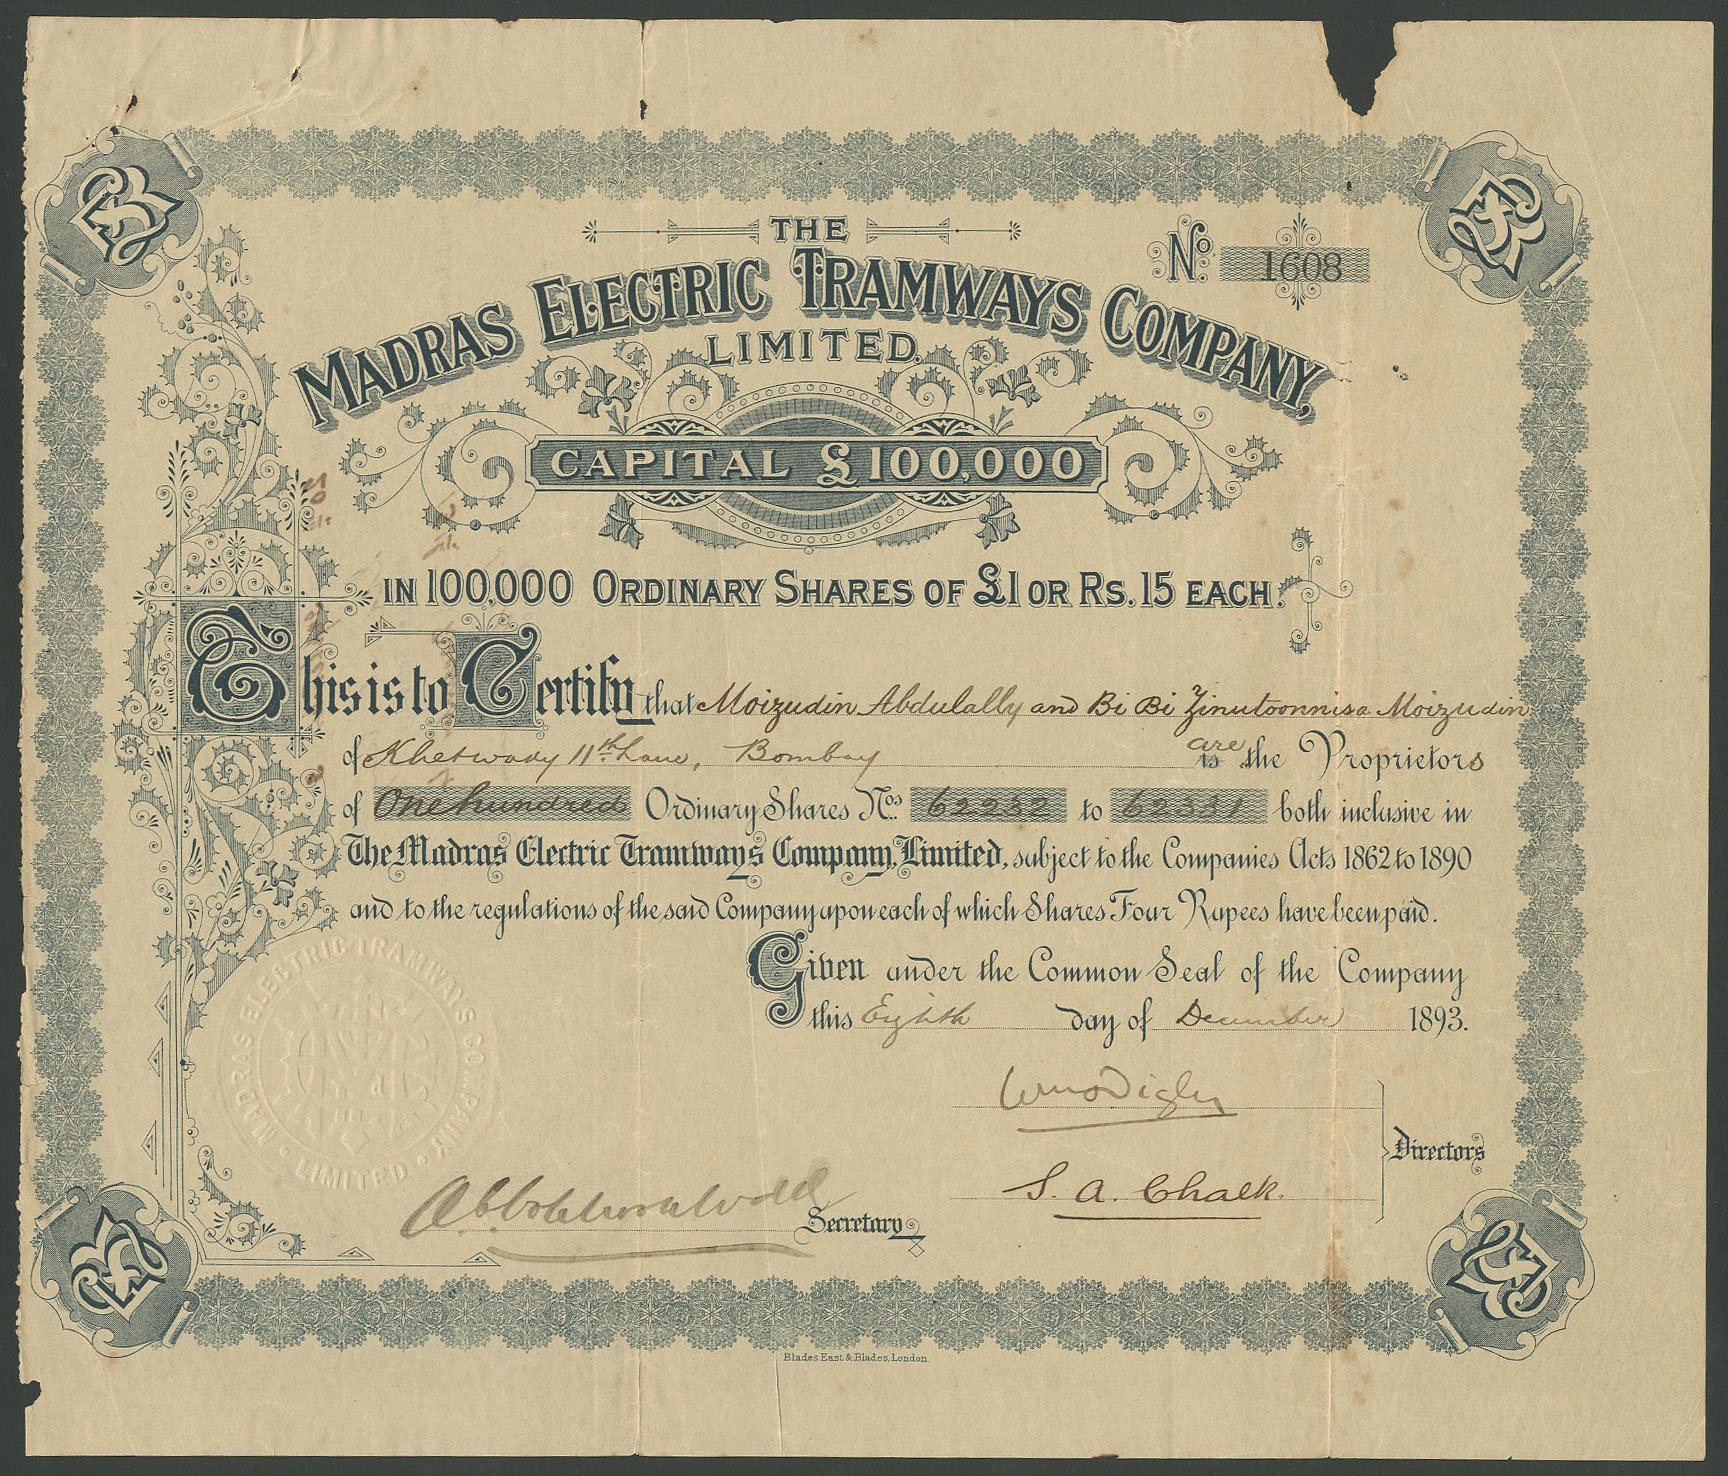 THE
No. 1608
MADRAS ELECTRIC TRAMWAYS COMPANY,
LIMITED.
CAPITAL £100,000
IN 100,000 ORDINARY SHARES OF £1 OR RS. 15 EACH.
This is to Certify that Moizudin Abdulally and Bi Bi Zinutoonnisa Moizudin
of Khetwady 11th Lane, Bombay are is the Proprietors
of One hundred Ordinary Shares Nos. 62232 to 62331 both inclusive in
The Madras Electric Tramways Company, Limited, subject to the Companies Acts 1862 to 1890
and to the regulations of the said Company upon each of which Shares Four Rupees have been paid.
Given under the Common Seal of the Company
this Eighth day of December 1893.
Wm Digby
Directors
S. A. Chalk.
Secretary
MADRAS ELECTRIC TRAMWAYS COMPANY
LIMITED
Blades East & Blades, London.